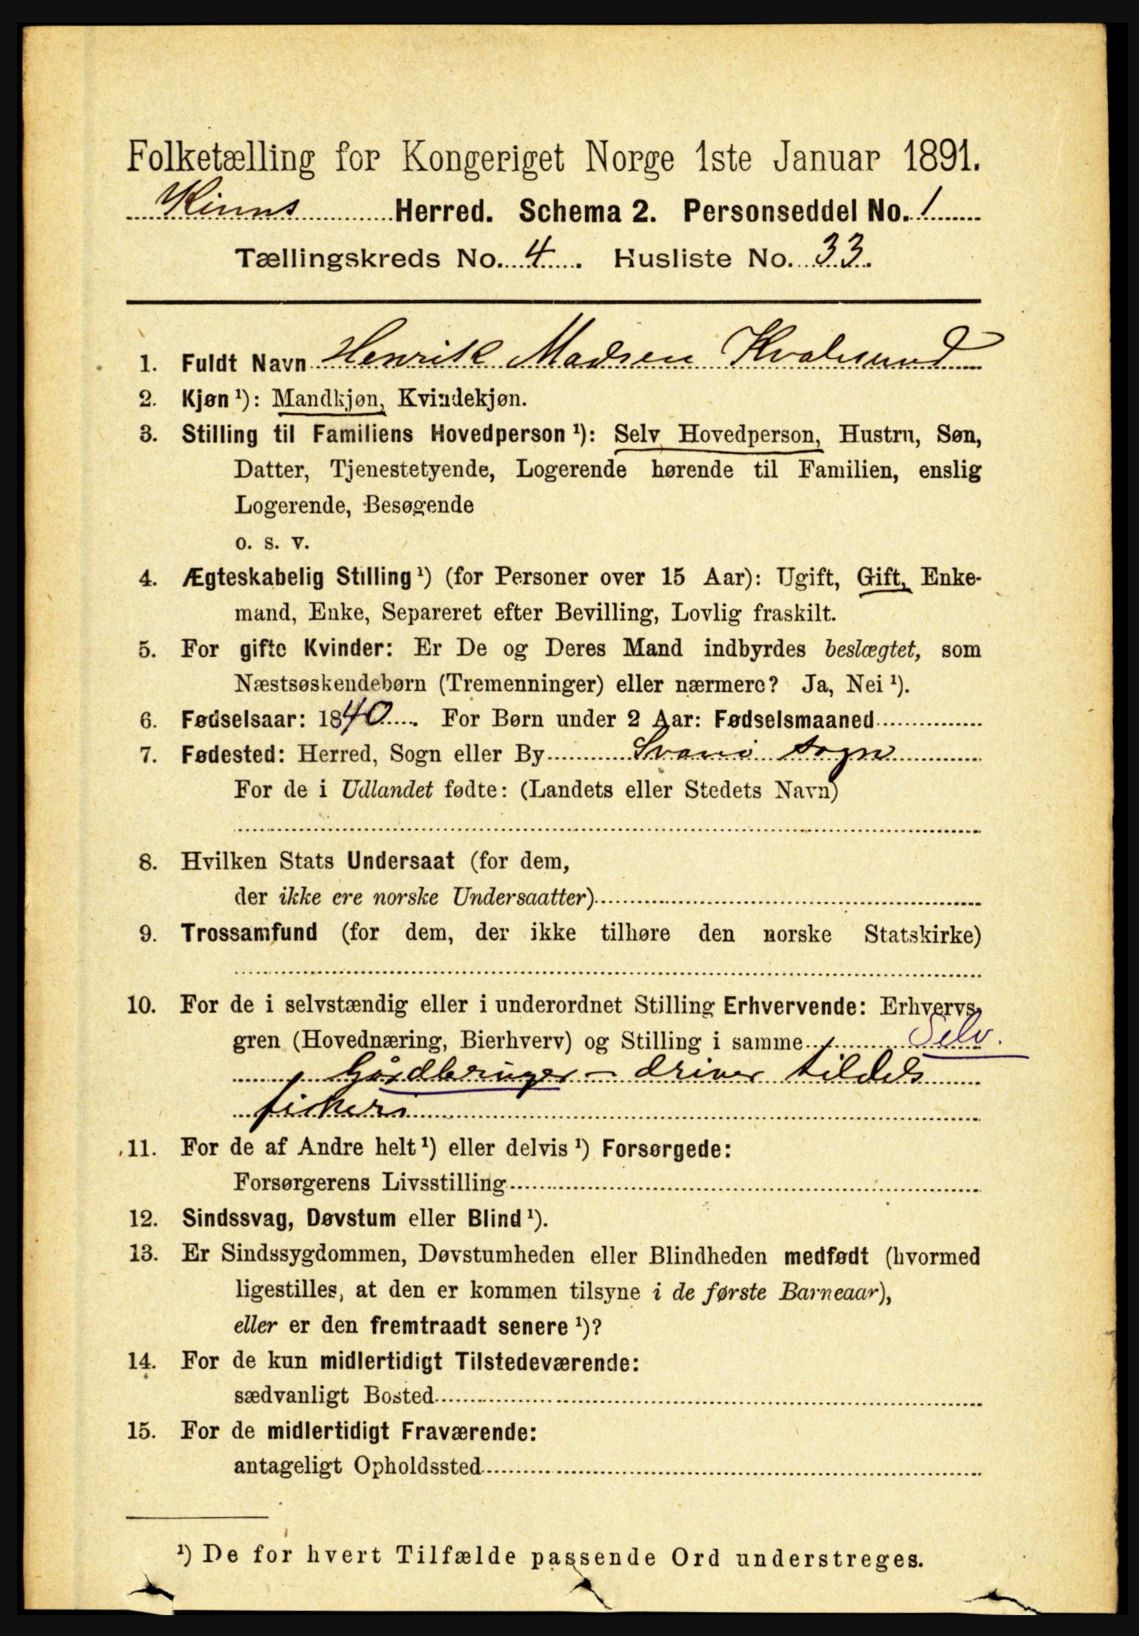 Folketælling for Kongeriget Norge 1ste Januar 1891.
Kinns Herred. Schema 2. Personseddel No. 1
Tællingskreds No. 4. Husliste No. 33.
1. Fuldt Navn Henrik Madsen Kvalsund
2. Kjøn ¹): Mandkjøn, Kvindekjøn.
3. Stilling til Familiens Hovedperson ¹): Selv Hovedperson, Hustru, Søn,
Datter, Tjenestetyende, Logerende hørende til Familien, enslig
Logerende, Besøgende
o. s. v.
4. Ægteskabelig Stilling ¹) (for Personer over 15 Aar): Ugift, Gift, Enke-
mand, Enke, Separeret efter Bevilling, Lovlig fraskilt.
5. For gifte Kvinder: Er De og Deres Mand indbyrdes beslægtet, som
Næstsøskendebørn (Tremenninger) eller nærmere? Ja, Nei ¹).
6. Fødselsaar: 1840. For Børn under 2 Aar: Fødselsmaaned
7. Fødested: Herred, Sogn eller By Svanø sogn
For de i Udlandet fødte: (Landets eller Stedets Navn)
8. Hvilken Stats Undersaat (for dem,
der ikke ere norske Undersaatter)
9. Trossamfund (for dem, der ikke tilhøre den norske Statskirke)
10. For de i selvstændig eller i underordnet Stilling Erhvervende: Erhvervs-
gren (Hovednæring, Bierhverv) og Stilling i samme Selv.
Gårdbruger – driver tildels
fiskeri
11. For de af Andre helt ¹) eller delvis ¹) Forsørgede:
Forsørgerens Livsstilling
12. Sindssvag, Døvstum eller Blind ¹).
13. Er Sindssygdommen, Døvstumheden eller Blindheden medfødt (hvormed
ligestilles, at den er kommen tilsyne i de første Barneaar),
eller er den fremtraadt senere ¹)?
14. For de kun midlertidigt Tilstedeværende:
sædvanligt Bosted
15. For de midlertidigt Fraværende:
antageligt Opholdssted
¹) De for hvert Tilfælde passende Ord understreges.